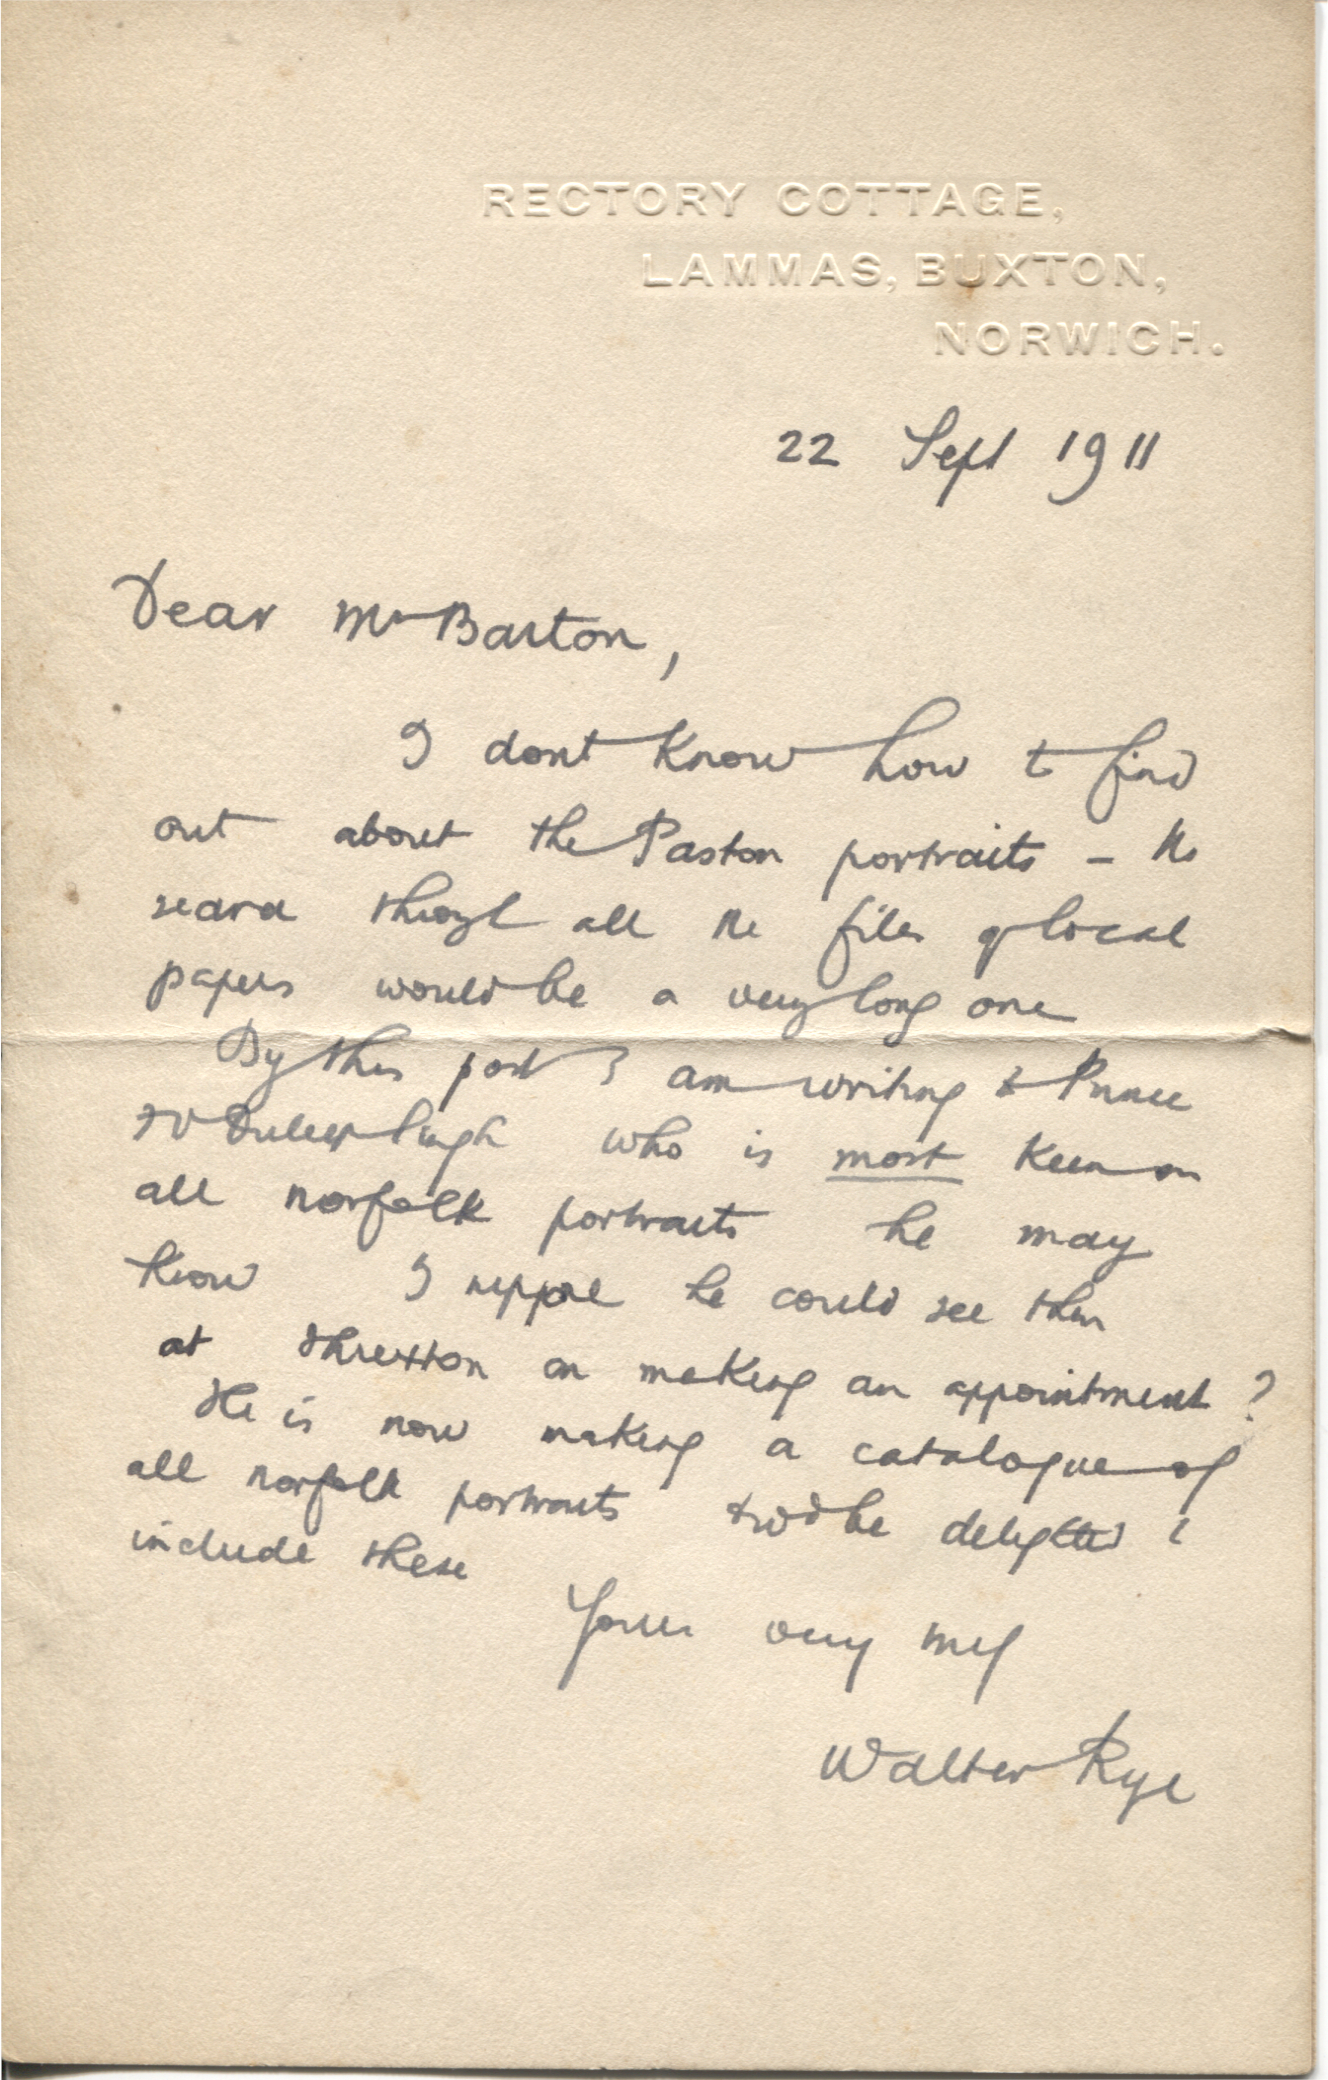 RECTORY COTTAGE,
LAMMAS, BUXTON,
NORWICH.
22 Sept 1911
Dear Mr Barton,
I dont know how to find
out about the Paston portraits – the
search through all the files of local
papers would be a very long one
By this post I am writing to Prince
Duleep Singh who is most keen on
all norfolk portraits he may
know I suppose he could see them
at Threxton on making an appointment?
He is now making a catalogue of
all norfolk portraits & wd be delighted to
include these
Yours very truly
Walter Rye